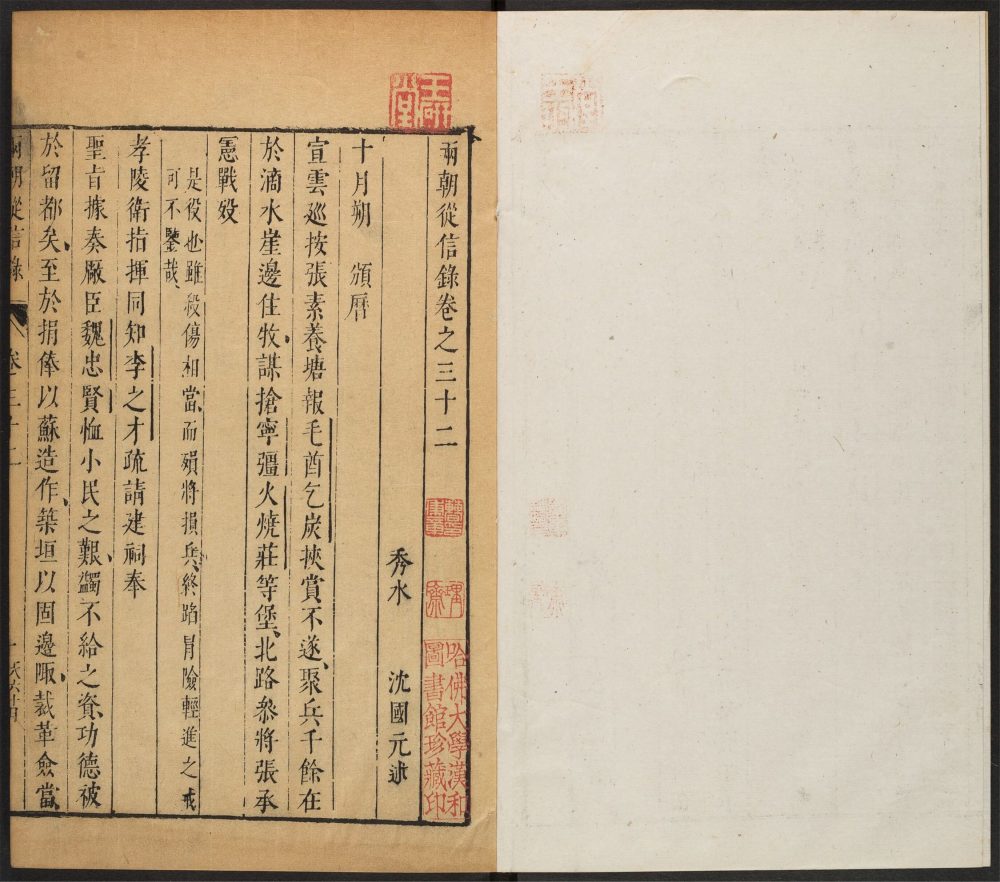 兩朝從信錄卷之三十二
秀水 沈國元述
十月朔 頒曆
宣雲巡按張素養塘報毛酋乞炭挾賞不遂聚兵千餘在
於滴水崖邊住牧謀搶寧疆火燒莊等堡北路叅將張承
憲戰歿
是役也雖殺傷相當而殞將損兵終蹈冐險輕進之戒
可不鑒哉
孝陵衛指揮同知李之才疏請建祠奉
聖旨據奏厰臣魏忠賢恤小民之艱蠲不給之資功德被
於留都矣至於捐俸以蘇造作築垣以固邊陬裁革僉當
兩朝從信錄 卷三十二
哈佛大學漢和
圖書館珍藏印